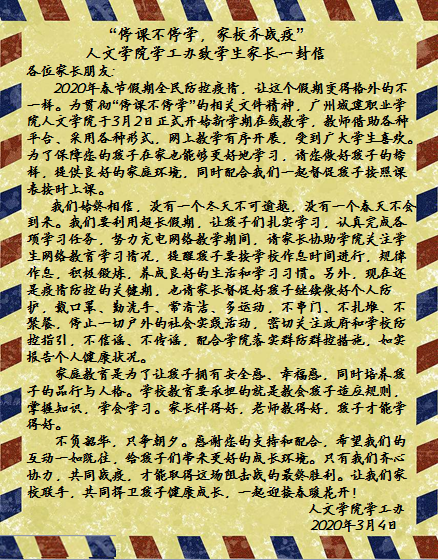 “停课不停学，家校齐战疫”
人文学院学工办致学生家长一封信
各位家长朋友：
2020年春节假期全民防控疫情，让这个假期变得格外的不
一样。为贯彻“停课不停学”的相关文件精神，广州城建职业学
院人文学院于3月2日正式开始新学期在线教学，教师借助各种
平台、采用各种形式，网上教学有序开展，受到广大学生喜欢。
为了保障您的孩子在家也能够更好地学习，请您做好孩子的榜
样，提供良好的家庭环境，同时配合我们一起督促孩子按照课
表按时上课。
我们始终相信，没有一个冬天不可逾越，没有一个春天不会
到来。我们要利用超长假期，让孩子们扎实学习，认真完成各
项学习任务，努力充电网络教学期间，请家长协助学院关注学
生网络教育学习情况，提醒孩子要按学校作息时间进行，规律
作息，积极锻炼，养成良好的生活和学习习惯。另外，现在还
是疫情防控的关健期，也请家长督促好孩子继续做好个人防
护，戴口罩、勤洗手、常清洁、多运动，不串门、不扎堆、不
聚餐，停止一切户外的社会实践活动，密切关注政府和学校防
控指引，不信谣、不传谣，配合学院落实群防群控措施，如实
报告个人健康状况。
家庭教育是为了让孩子拥有安全感、幸福感，同时培养孩
子的品行与人格。学校教育要承担的就是教会孩子适应规则，
掌握知识，学会学习。家长伴得好，老师教得好，孩子才能学
得好。
不负韶华，只争朝夕。感谢您的支持和配合，希望我们的
互动一如既往，给孩子们带来更好的成长环境。只有我们齐心
协力，共同战疫，才能取得这场阻击战的最终胜利。让我们家
校联手，共同捍卫孩子健康成长，一起迎接春暖花开！
人文学院学工办
2020年3月4日